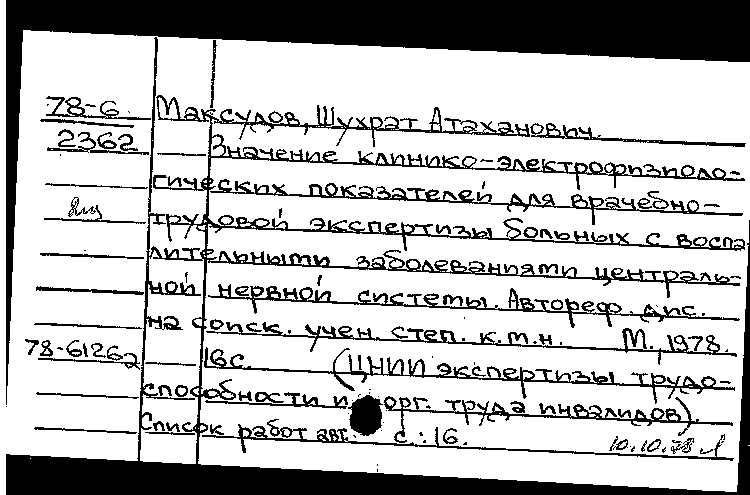 78-6 Максудов, Шухрат Атаханович.
2362 Значение клинико-электрофизиоло-
гических показателей для врачебно-
трудовой экспертизы больных с воспа
лительными заболеваниями централь-
ной нервной системы. Автореф. дис.
на соиск. учен. степ. к.м.н. М., 1978.
78-61262 16с. (ЦНИИ экспертизы трудо-
способности и орг. труда инвалидов).
Список работ авт.: с.:16. 10.10.78